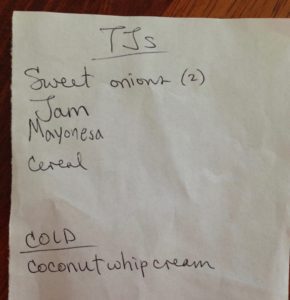 TJs
Sweet onions (2)
Jam
Mayonesa
Cereal
COLD
Coconut whip cream